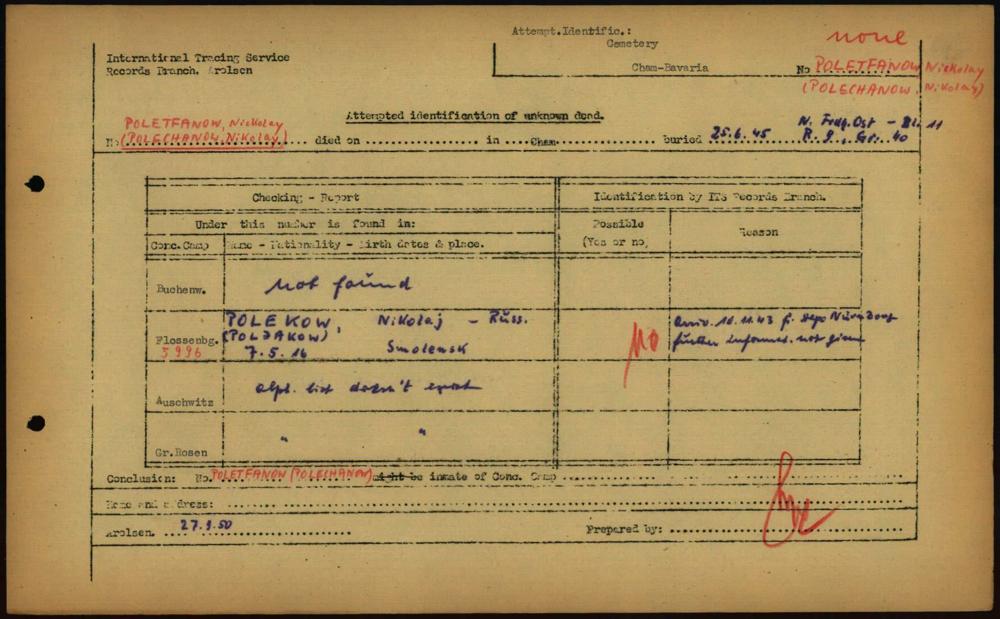 Attempt.Identific.:
none
Cemetery
International Tracing Service
Records Branch, Arolsen
Cham-Bavaria
No POLETFANOW, Nickolay
(POLECHANOW, Nikolay)
Attempted identification of unknown dead.
POLETFANOW, Nickolay
(POLECHANOW, Nikolay)
No died on in Cham buried 25.6.45
N. Frdg. Ost - Bl. 11
R. 2., Gr. 40
Checking - Report
Identification by ITS Records Branch.
Under this number is found in:
Possible
(Yes or no)
Reason
Conc.Camp
Name - Nationality - Birth dates & place.
Buchenw.
not found
Flossenbg.
5996
POLEKOW, Nikolaj - Russ.
(POLJAKOW)
7.5.16 Smolensk
No
arriv. 10.11.43 f.
further informat. not given
Auschwitz
alph. list doesn't exist
Gr.Rosen
" "
Conclusion: No. POLETFANOW (POLECHANOW) might be inmate of Conc. Camp
Name and address:
Arolsen. 27.9.50
Prepared by: